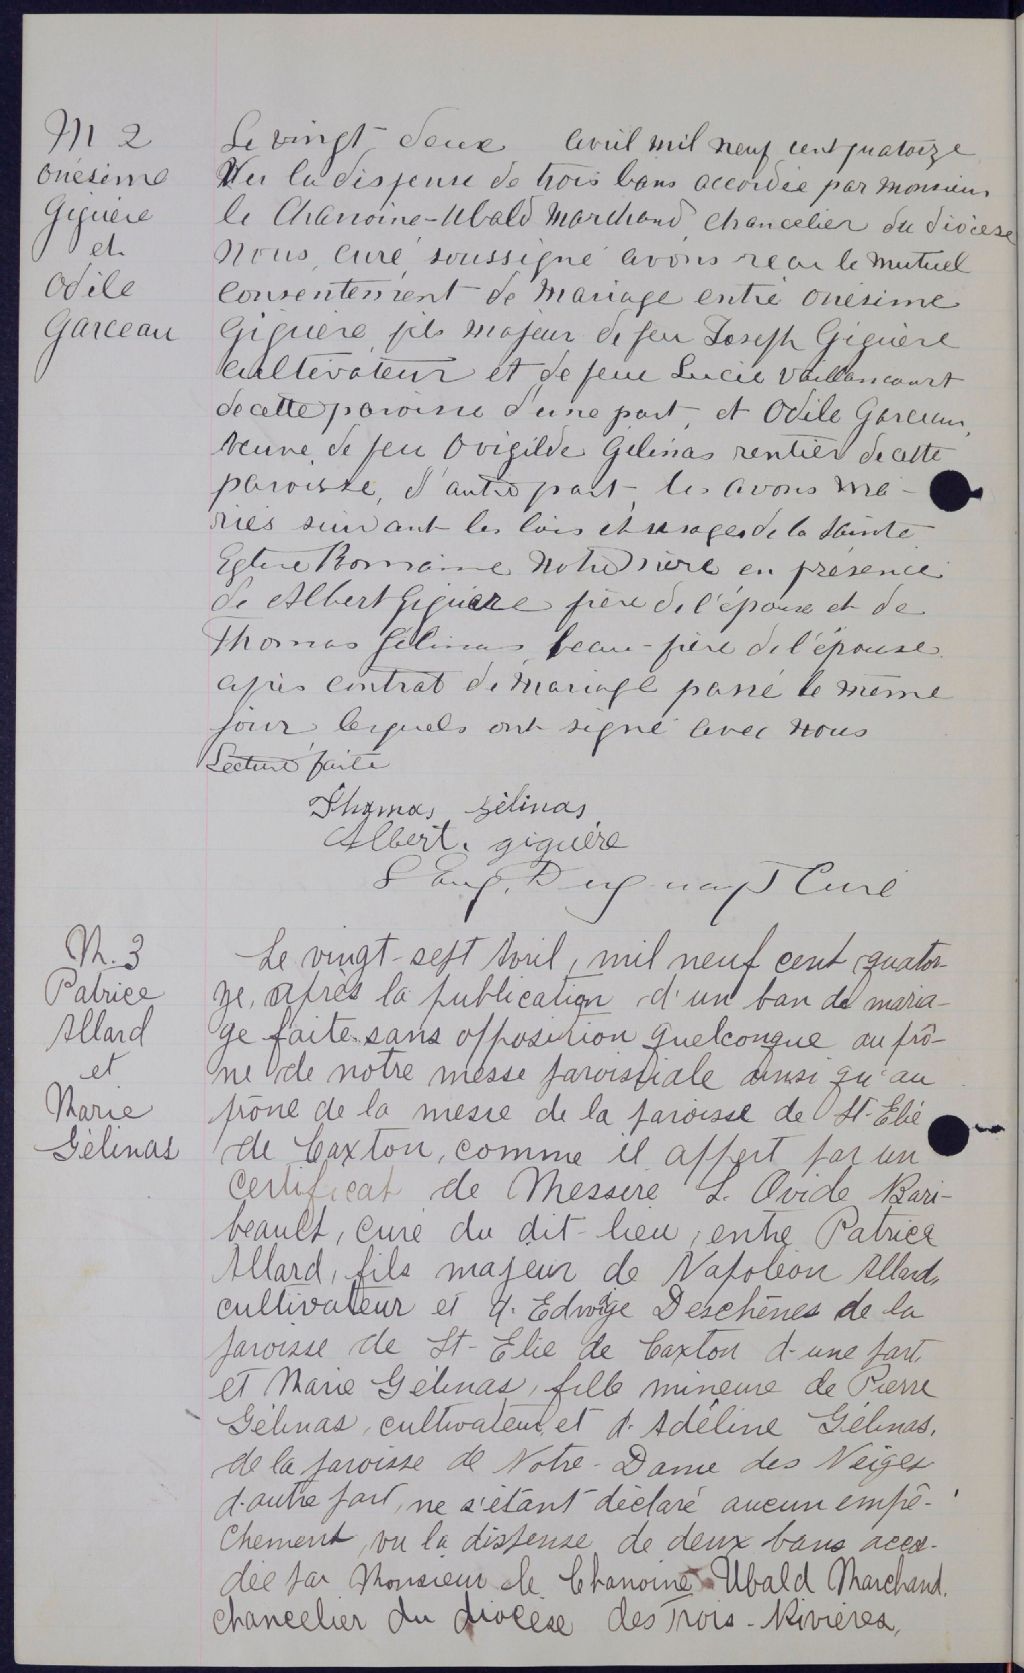 M 2
Onésime
Giguère
et
Odile
Garceau
Le vingt-deux avril mil neuf cent quatorze
Vu la dispense de trois bans accordée par Monsieur
le Chanoine-Ubald Marchand chancelier du diocèse
Nous, curé soussigné avons reçu le mutuel
consentement de mariage entre Onésime
Giguère, fils majeur de feu Joseph Giguère
cultivateur et de feue Lucie Vaillancourt
de cette paroisse d'une part, et Odile Garceau,
veuve de feu Ovigilde Gélinas rentier de cette
paroisse, d'autre part, les avons ma-
riés suivant les lois et usages de la Sainte
Eglise Romaine Notre Mère en présence
de Albert Giguère frère de l'époux et de
Thomas Gélinas beau-frère de l'épouse
après contrat de mariage passé le même
jour lesquels ont signé avec nous
Lecture faite
Thomas Gélinas
Albert. giguére
Curé
M. 3
Patrice
Allard
et
Marie
Gélinas
Le vingt-sept Avril, mil neuf cent quator-
ze, après la publication d'un ban de maria-
ge faite sans opposition quelconque au prô-
ne de notre messe paroissiale ainsi qu'au
prône de la messe de la paroisse de St-Elie
de Caxton, comme il appert par un
certificat de Messire L. Ovide Bari-
beault, curé du dit-lieu, entre Patrice
Allard, fils majeur de Napoléon Allard,
cultivateur et d'Edwige Deschênes de la
paroisse de St-Elie de Caxton d'une part,
et Marie Gélinas, fille mineure de Pierre
Gélinas, cultivateur, et d'Adéline Gélinas,
de la paroisse de Notre-Dame des Neiges
d'autre part, ne s'étant déclaré aucun empê-
chement, vu la dispense de deux bans accor-
dée par Monsieur le Chanoine Ubald Marchand,
chancelier du diocèse des Trois-Rivières,